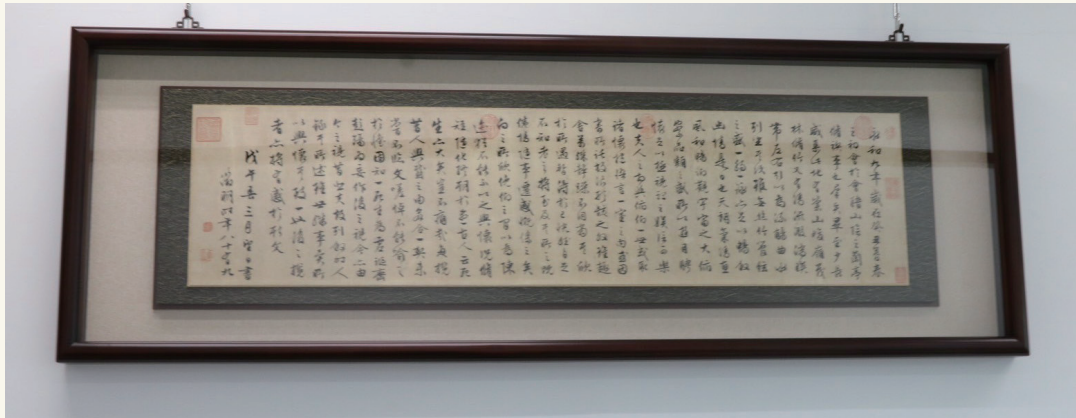 永和九年歲在癸丑暮春
之初會於會稽山陰之蘭亭
脩禊事也羣賢畢至少長
咸集此地有崇山峻領茂
林脩竹又有清流激湍映
帶左右引以為流觴曲水
列坐其次雖無絲竹管絃
之盛一觴一詠亦足以暢敘
幽情是日也天朗氣清惠
風和暢仰觀宇宙之大俯
察品類之盛所以遊目騁
懷足以極視聽之娛信可樂
也夫人之相與俯仰一世或取
諸懷抱悟言一室之內或因
寄所託放浪形骸之外雖趣
舍萬殊靜躁不同當其欣
於所遇暫得於己快然自足
不知老之將至及其所之既
倦情隨事遷感慨係之矣
向之所欣俛仰之間以為陳
迹猶不能不以之興懷況脩
短隨化終期於盡古人云死
生亦大矣豈不痛哉每攬
昔人興感之由若合一契未
嘗不臨文嗟悼不能喻之
於懷固知一死生為虛誕齊
彭殤為妄作後之視今亦由
今之視昔悲夫故列敘時人
錄其所述雖世殊事異所
以興懷其致一也後之攬
者亦將有感於斯文
戊午春三月望日書
年八十有九